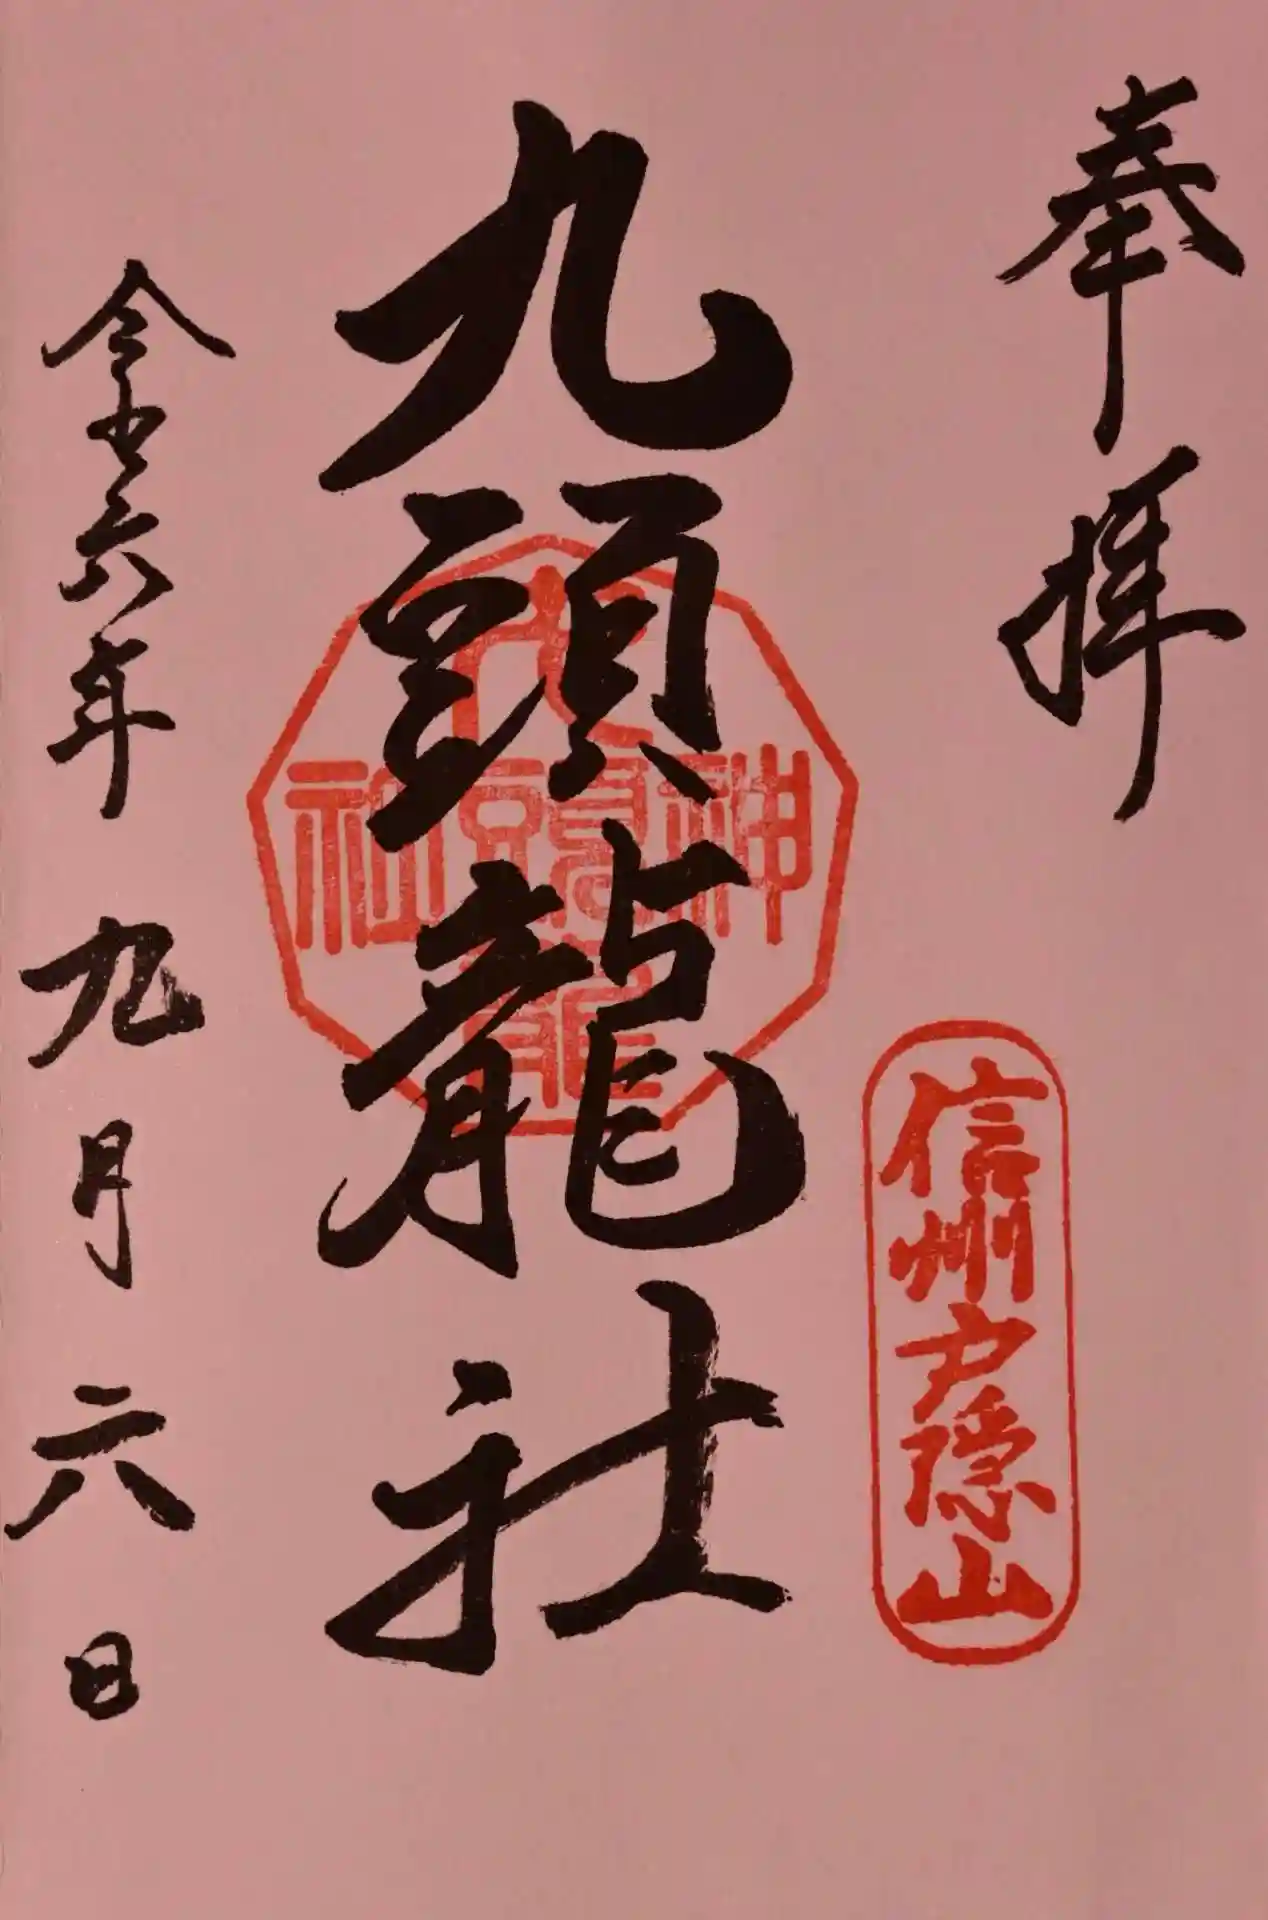 奉拝
信州戸隠山
九頭龍社
神
九頭龍
社
令和六年九月六日